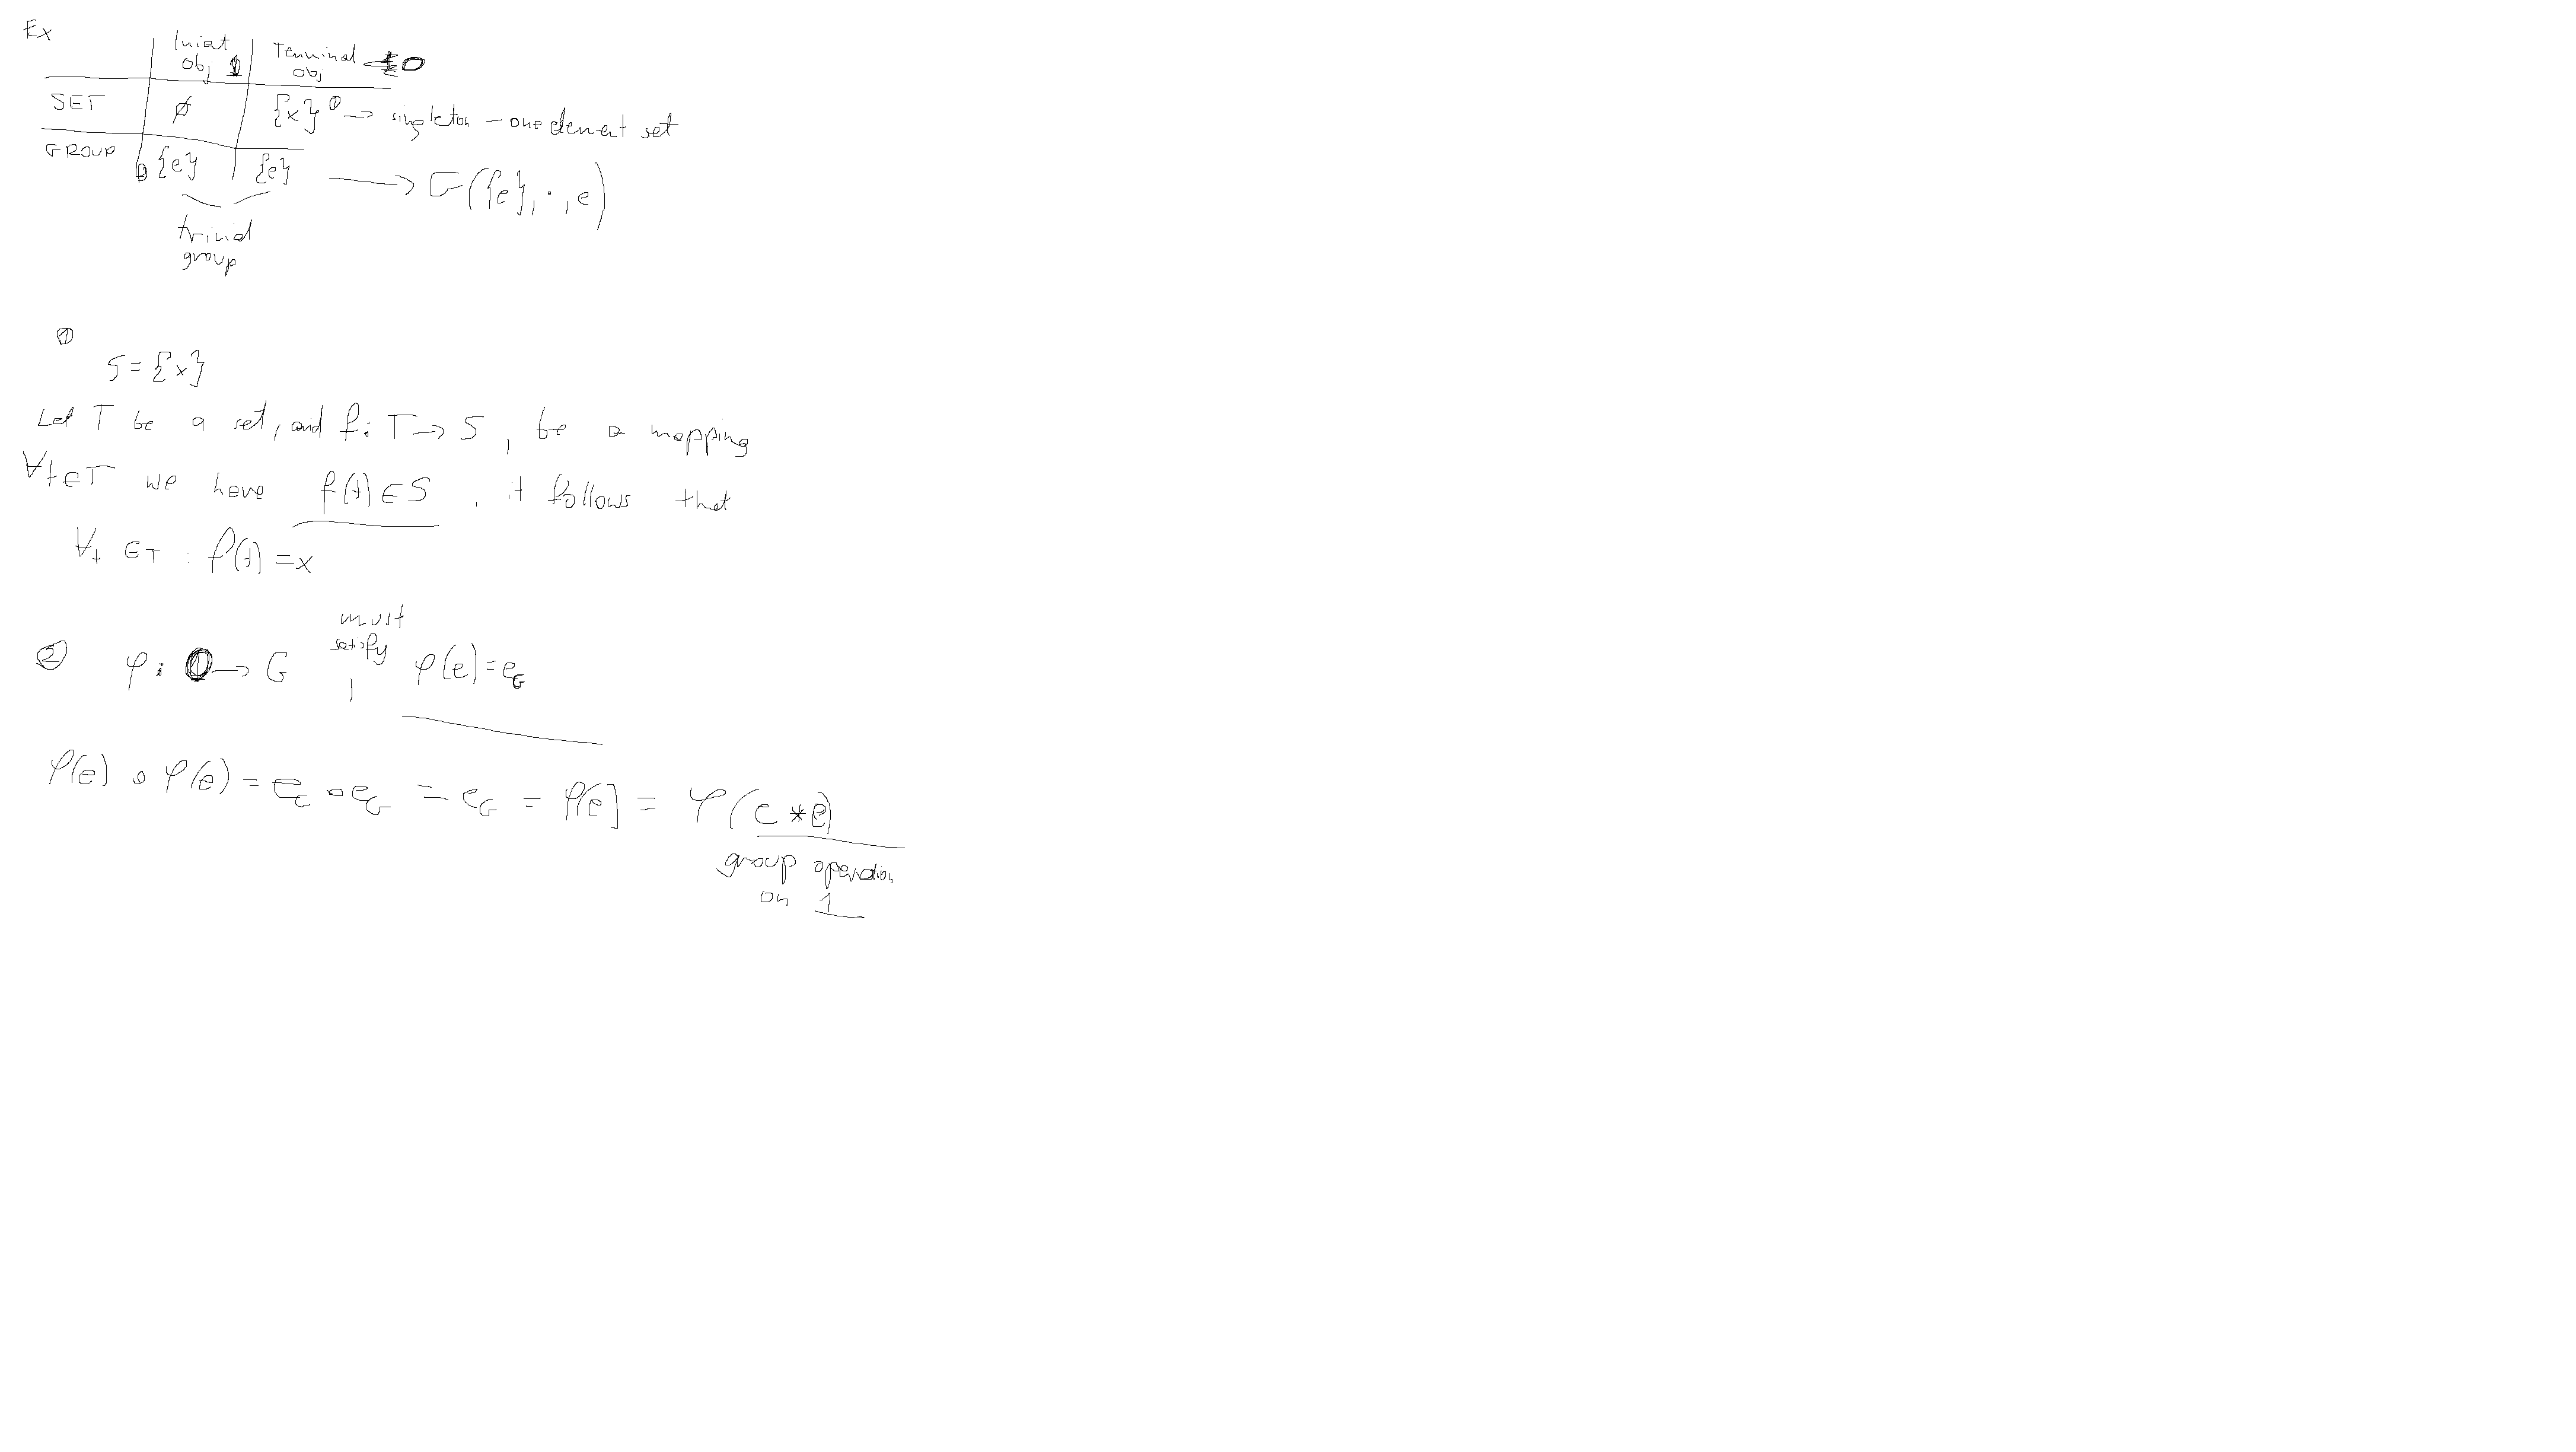 Ex
Iniat obj 1 Terminal obj 0
SET ∅ {x} ① → singleton – one element set
GROUP {e} {e} → G({e}, ·, e)
trivial
group
①
S = {x}
Let T be a set, and f: T → S, be a mapping
∀t∈T we have f(t) ∈ S, it follows that
∀t ∈ T : f(t) = x
② φ: → G must satisfy, φ(e) = e_G
φ(e) ∘ φ(e) = e_G ∘ e_G = e_G = φ(e) = φ(e * e)
group operation
on 1